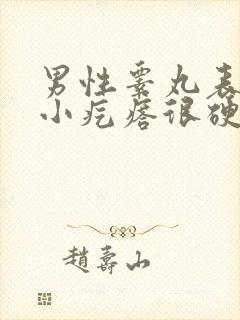 男性睾丸表
小疙瘩很硬
趙壽山